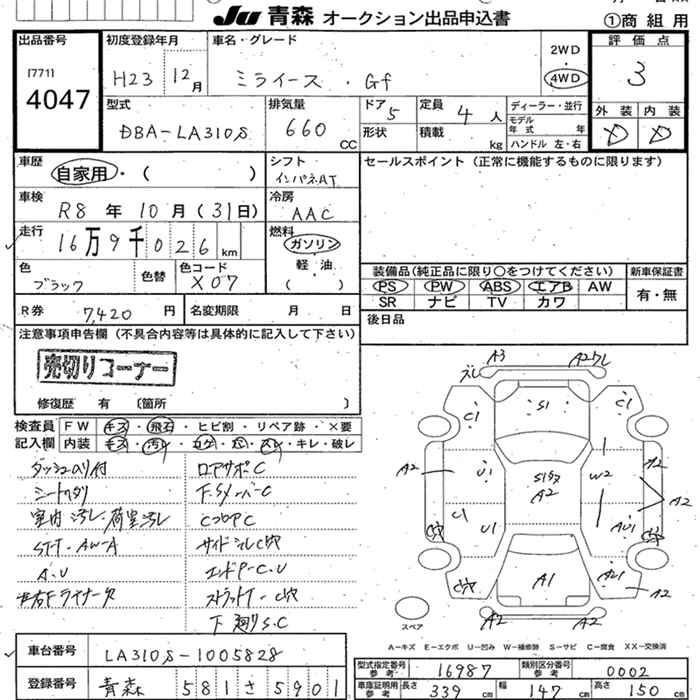 Ju 青森 オークション出品申込書 ①商 組 用
出品番号
[771]
4047
初度登録年月
H23 12月
車名・グレード
ミライース . Gf
2WD
4WD
評価点
3
型式
DBA-LA310S
排気量
660 CC
ドア 5
形状
定員 4 人
積載 kg
ディーラー・並行
モデル年式 年
ハンドル 左・右
外装 内装
D D
車歴
自家用・( )
シフト
インパネAT
セールスポイント(正常に機能するものに限ります)
車検
R8 年 10 月 (31日)
冷房
AAC
走行
16万9千026 km
燃料
ガソリン
軽・油
( )
色
ブラック
色替
色コード
X07
装備品(純正品に限り○をつけてください)
PS PW ABS エアB AW
SR ナビ TV カワ
新車保証書
有・無
R券 7,420 円
名変期限 月 日
後日品
注意事項申告欄(不具合内容等は具体的に記入して下さい)
売切りコーナー
修復歴 有 〔箇所 〕
検査員記入欄
FW キズ・飛石・ヒビ割・リペア跡・×要
内装 キズ・汚レ・コゲ・穴・スレ・キレ・破レ
ダッシュ入リ付
シートヘタリ
室内汚レ.荷室汚レ
ST-T.AW-A
A.U
左右Fライナー欠
ロアサポC
F.Sメンバーc
CフロアC
サイドシルC穴
エンドP-C.U
ストラットT-C穴
下廻りS.C
A3
ズレ
A2ワレ
C1
S1
C1
A2
U1
S1多
A2
W2
A2
A2
C穴
C1
U1
AU1
C穴
C穴
A1
AU1
A2
A2
A2
スペア
A-キズ E-エクボ U-凹み W-補修跡 S-サビ C-腐食 XX-交換済
車台番号 LA310S-1005828
登録番号 青森 581 さ 5901
型式指定番号参考 16987
類別区分番号参考 0002
車庫証明用参考 長さ 339 cm 幅 147 cm 高さ 150 cm